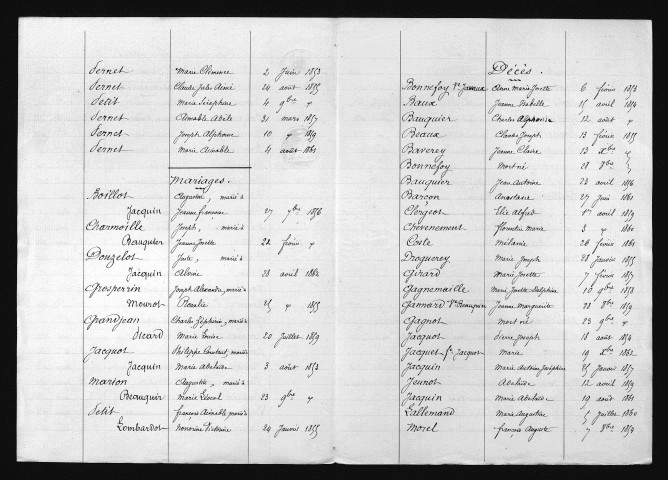 Sernet Marie Clémence 2 Juin 1853
Sernet Claude Jules Aimé 24 août 1855
Petit Marie Séraphine 4 9bre "
Sernet Aimable Adèle 31 mars 1857
Sernet Joseph Alphonse 10 " 1859
Sernet Marie Aimable 4 août 1861
Mariages.
Boillot Augustin, marié à
Jacquin Jeanne françoise 27 7bre 1856
Charmoille Joseph, marié à
Bauquier Jeanne Josette 22 février "
Douzelot Juste, marié à
Jacquin Alvina 23 avril 1862
Grosperrin Joseph Alexandre, marié à
Mourot Rosalie 25 " 1855
Grandjean Charles Zéphirin, marié à
Sicard Marie Louise 20 Juillet 1859
Jacquot Philippe Constant, marié à
Jacquin Marie Adelaïde 3 août 1853
Marion Augustin, marié à
Beauquier Marie 23 9bre "
Petit françois Aimable, marié à
Lombardot honorine Victorine 24 Janvier 1855
Décès.
Bonnefoy Claire Marie Josette 6 février 1853
Baux Jeanne Isabelle 15 avril 1854
Bauquier Charles Alphonse 12 août "
Beaux Claude Joseph 13 février 1855
Baverey Jeanne Claire 13 Xbre "
Bonnefoy Mort né 28 8bre
Bauquier Jean Antoine 23 avril 1856
Barçon Anastasie 27 Juin 1861
Clergeot Elie Alfred 1er avril 1859
Chevènement Marie 3 " 1860
Coste Mélanie 26 février 1861
Droguerey Marie Joseph 28 Janvier 1855
Girard Marie Josette 7 février 1857
Gagnemaille Marie Josette Delphine 10 9bre 1858
Gannard Vve Beauquier Jeanne Marguerite 22 8bre 1859
Gagnot Mort né 23 9bre "
Jacquot Pierre Joseph 18 août 1854
Jacquet fe Jacquot Marie 19 Xbre 1862
Jacquin Marie Joséphine 25 Janvier 1857
Jeunot Adelaïde 12 avril 1859
Jacquin Marie Adelaïde 19 août 1861
Lallemand Marie Augustine 5 Juillet 1860
Morel françois Auguste 7 8bre 1859